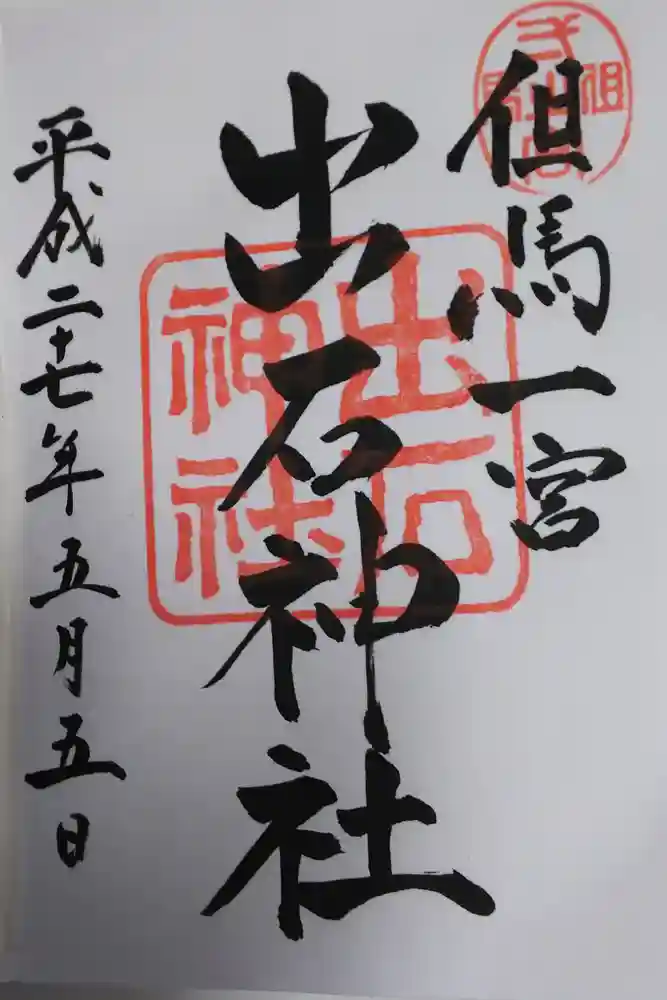 但馬一宮
出石神社
出石神社
平成二十七年五月五日